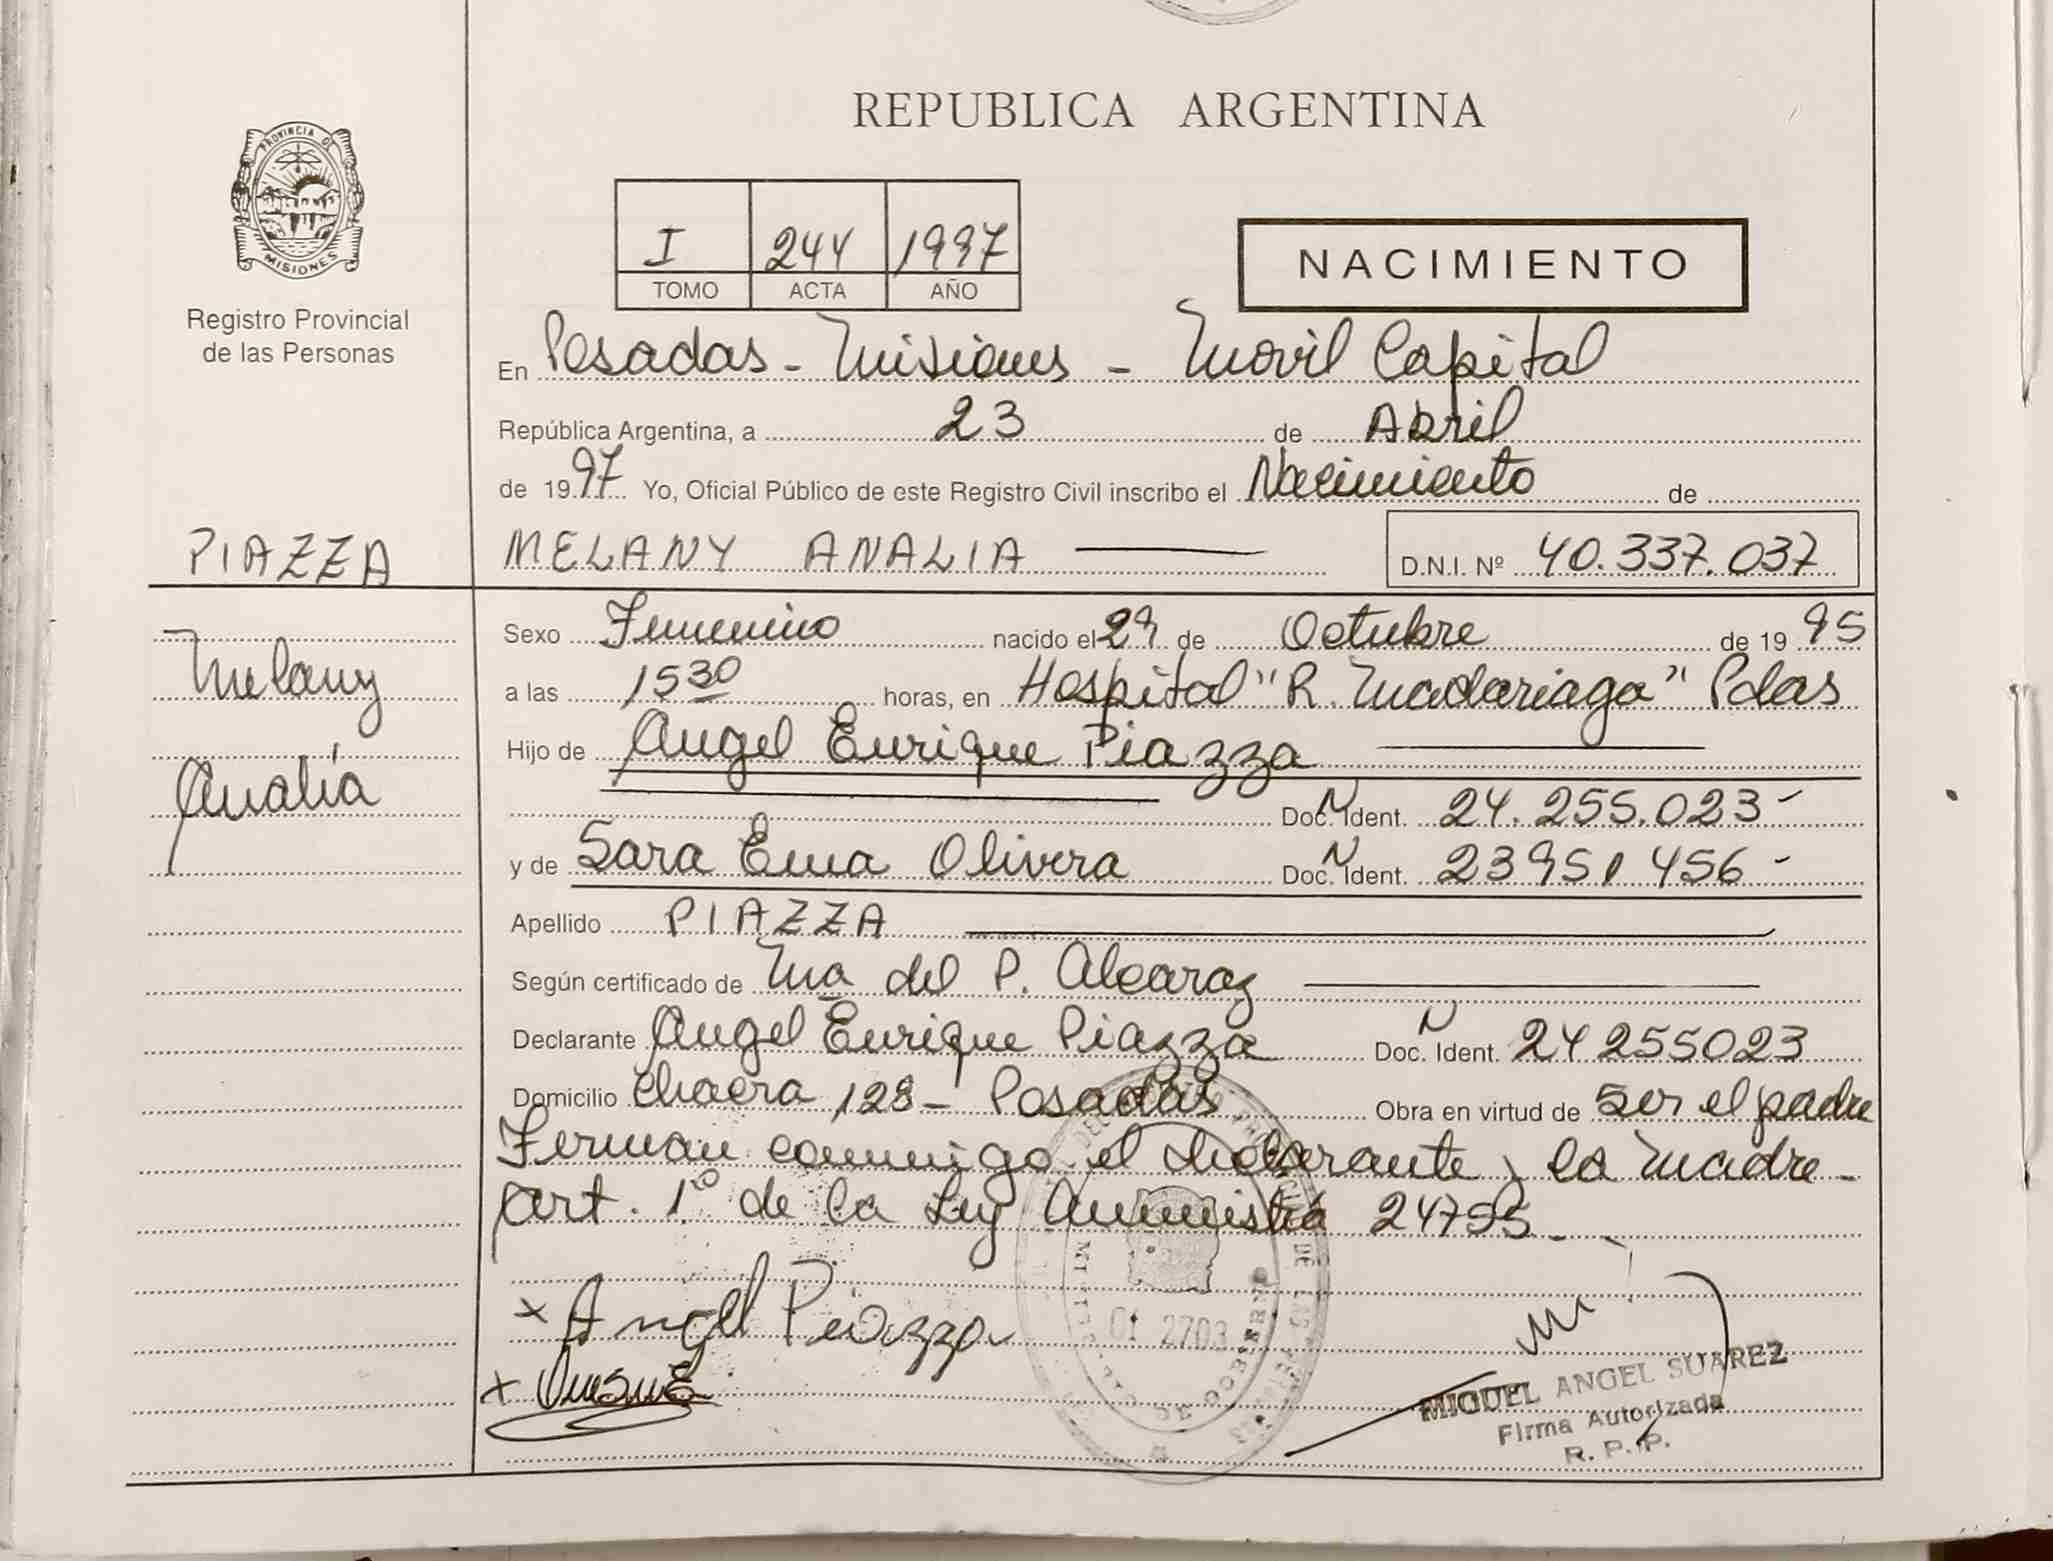 REPUBLICA ARGENTINA
PROVINCIA DE
MISIONES
Registro Provincial
de las Personas
I 244 1997
TOMO ACTA AÑO
NACIMIENTO
En Posadas - Misiones - Movil Capital
República Argentina, a 23 de Abril
de 1997 Yo, Oficial Público de este Registro Civil inscribo el Nacimiento de
PIAZZA MELANY ANALIA D.N.I. Nº 40.337.037
Melany
Analía
Sexo Femenino nacido el 29 de Octubre de 1995
a las 15 30 horas, en Hospital "R. Madariaga" Pdas
Hijo de Angel Enrique Piazza
Doc. Ident. N 24.255.023-
y de Sara Ema Olivera Doc. Ident. N 23951456-
Apellido PIAZZA
Según certificado de Ma del P. Alcaraz
Declarante Angel Enrique Piazza Doc. Ident. N 24255023
Domicilio Chacra 128 - Posadas Obra en virtud de ser el padre
Firman conmigo el declarante y la madre -
Art. 1º de la Ley Amnistía 24755 -
x Angel Piazza
x
MIGUEL ANGEL SUAREZ
Firma Autorizada
R. P. P.